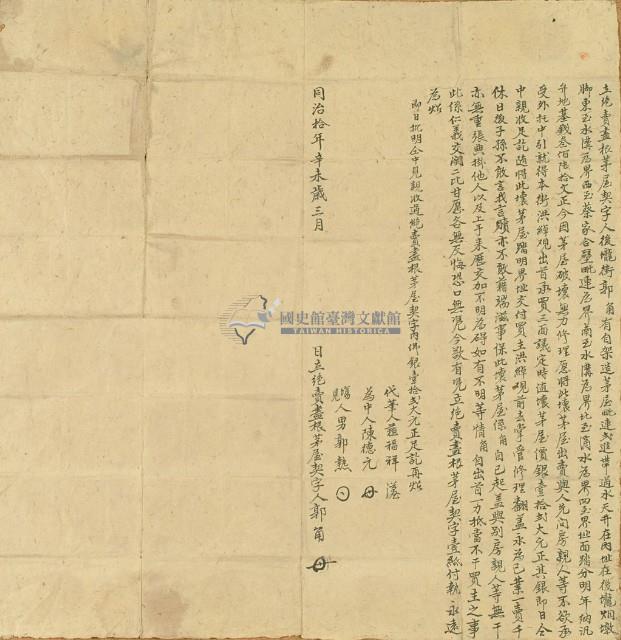 立絕賣盡根茅屋契字人後壠街郭角有自架造茅屋毗連弍進帶過水天井在內址在後壠烟墩
脚東至水溝為界西至蔡家合壁毗連為界南至水溝為界北至滴水為界四至界址面踏分明年納汎
弁地基錢叁佰陸拾文正今因茅屋破壞無力修理愿將此壞茅屋出賣與人先問房親人等不欲承
受外托中引就得本街洪綽观出首承買三面議定時值壞茅屋價銀壹拾弍大元正其銀即日仝
中親收足訖隨將此壞茅屋踏明界址交付買主洪綽观前去掌管修理翻蓋永為己業一賣千
休日後子孫不敢言找言贖亦不敢藉端滋事保此壞茅屋係角自己起蓋與別房親人等無干
亦無重張典掛他人以及上手來歷交加不明為碍如有不明等情角自出首一力抵當不干買主之事
此係仁義交關二比甘愿各無反悔恐口無凭今欲有凭立絕賣盡根茅屋契字壹紙付執永遠
為炤
即日批明仝中見親收過絕賣盡根茅屋契字內佛銀壹拾弍大元正足訖再炤
代筆人 福祥
為中人陳德元
塲見人男郭熱
同治拾年辛未歲三月 日立絕賣盡根茅屋契字人郭角
國史館臺灣文獻館
TAIWAN HISTORICA